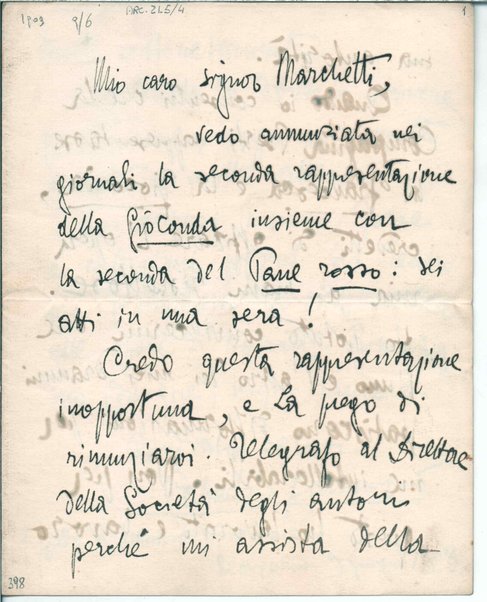 1909 9/6 ARC.21.5/4 1
Mio caro signor Marchetti,
vedo annunziata nei
giornali la seconda rappresentazione
della Gioconda insieme con
la seconda del Pane rosso: sei
atti in una sera!
Credo questa rappresentazione
inopportuna, e La prego di
rinunziarvi. Telegrafo al Direttore
della Società degli autori
perché mi assista della
398